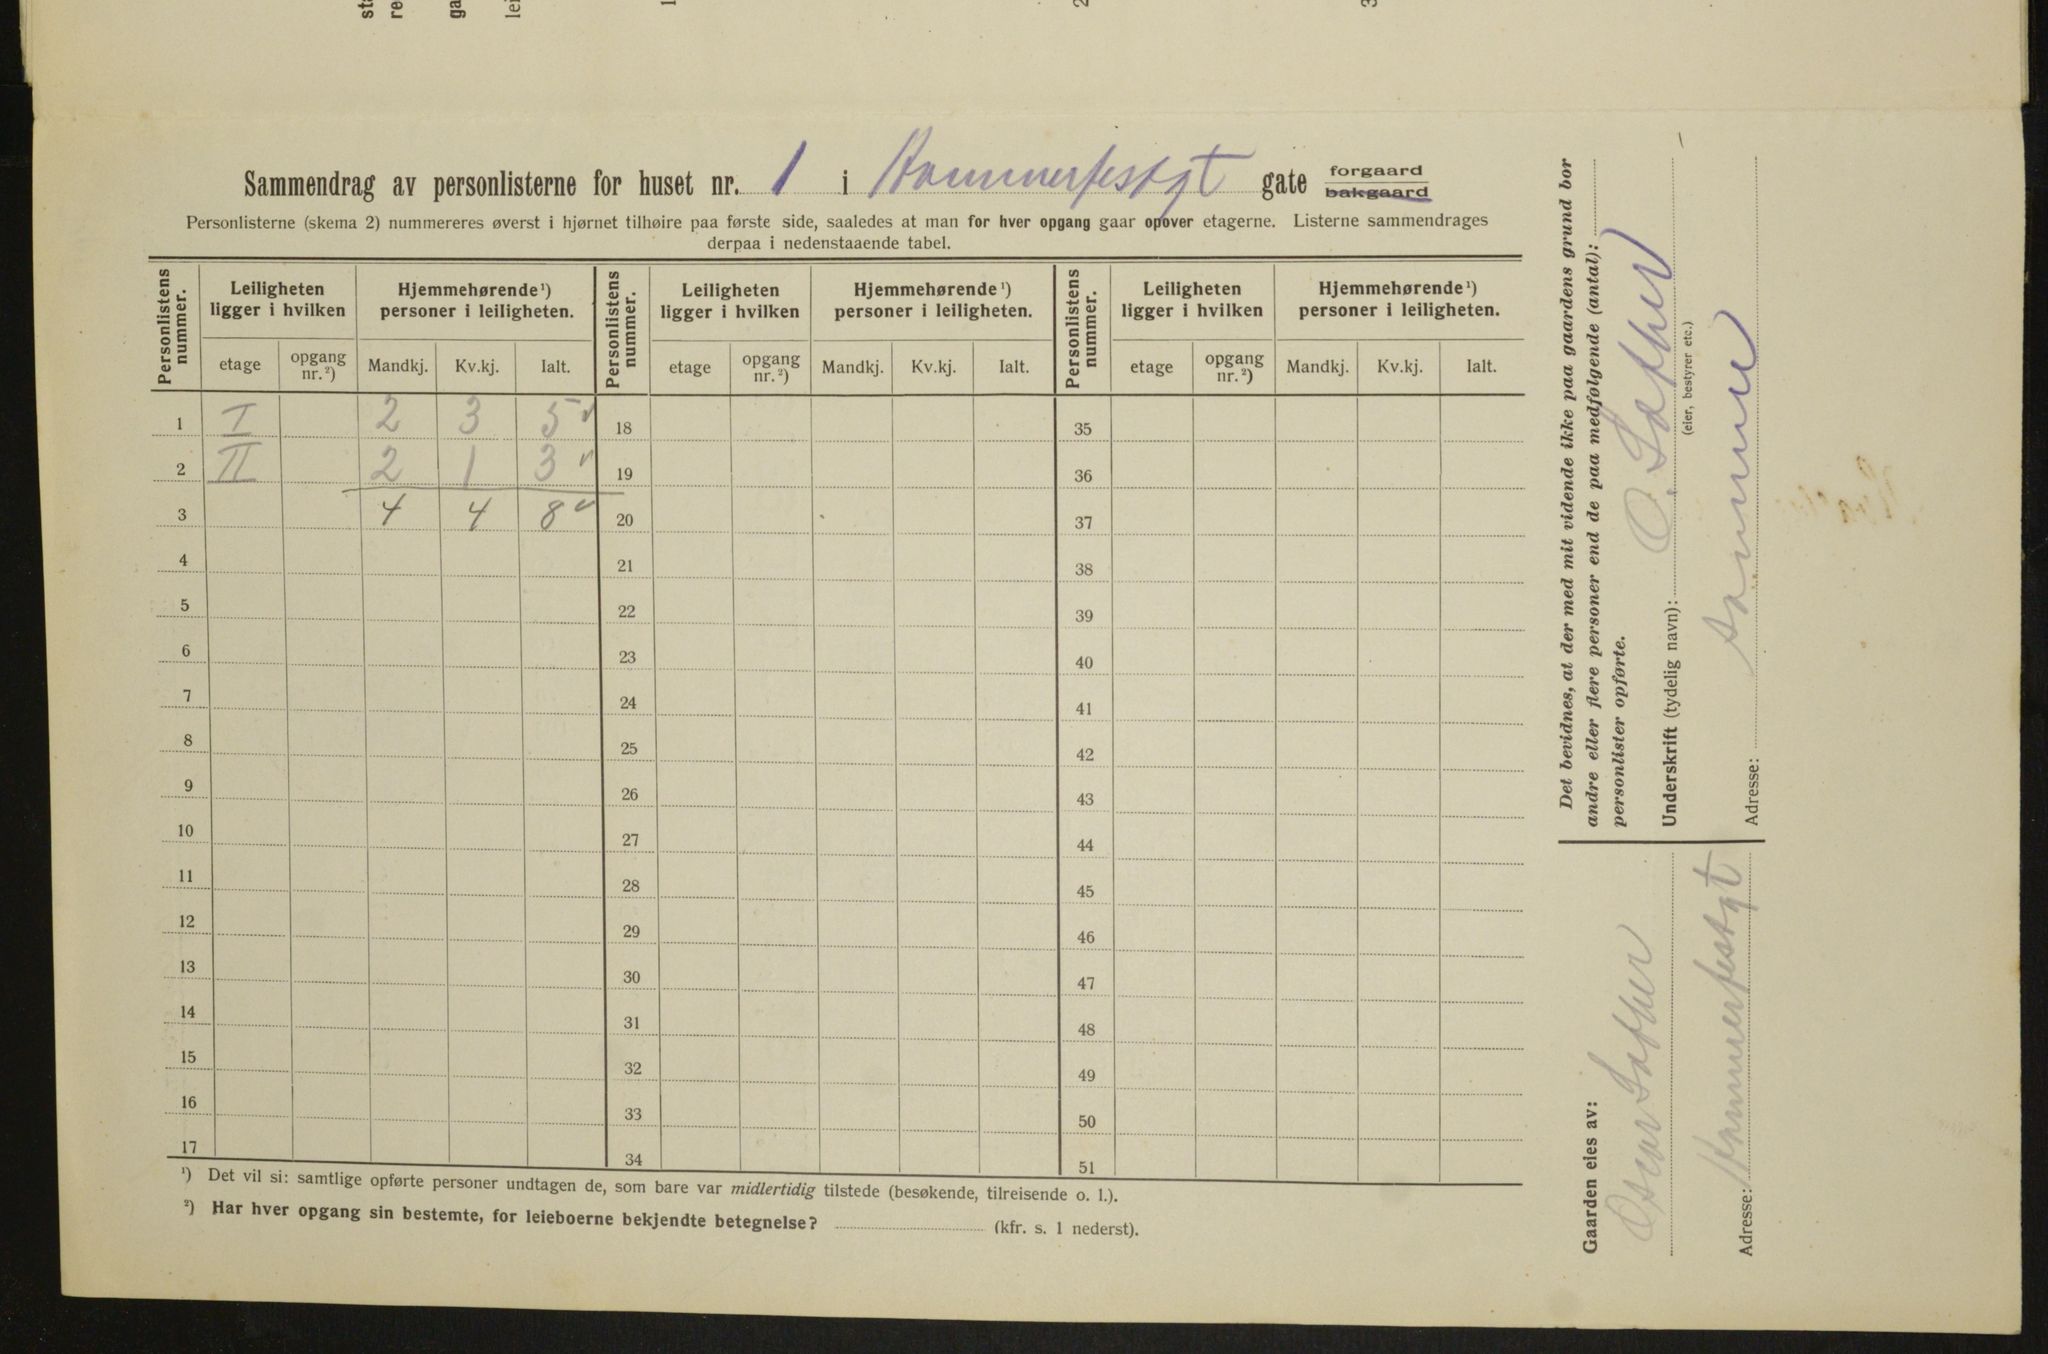 Sammendrag av personlisterne for huset nr. 1 i Hammerfestgt gate forgaard bakgaard
Personlisterne (skema 2) nummereres øverst i hjørnet tilhøire paa første side, saaledes at man for hver opgang gaar opover etagerne. Listerne sammendrages
derpaa i nedenstaaende tabel.
Personlistens nummer. Leiligheten ligger i hvilken Hjemmehørende ¹) personer i leiligheten. Personlistens nummer. Leiligheten ligger i hvilken Hjemmehørende ¹) personer i leiligheten. Personlistens nummer. Leiligheten ligger i hvilken Hjemmehørende ¹) personer i leiligheten.
etage opgang nr. ²) Mandkj. Kv.kj. Ialt. etage opgang nr. ²) Mandkj. Kv.kj. Ialt. etage opgang nr. ²) Mandkj. Kv.kj. Ialt.
1 I 2 3 5 18 35
2 II 2 1 3 19 36
3 4 4 8 20 37
4 21 38
5 22 39
6 23 40
7 24 41
8 25 42
9 26 43
10 27 44
11 28 45
12 29 46
13 30 47
14 31 48
15 32 49
16 33 50
17 34 51
¹) Det vil si: samtlige opførte personer undtagen de, som bare var midlertidig tilstede (besøkende, tilreisende o. l.).
²) Har hver opgang sin bestemte, for leieboerne bekjendte betegnelse? (kfr. s. 1 nederst).
Det bevidnes, at der med mit vidende ikke paa gaardens grund bor
andre eller flere personer end de paa medfølgende (antal):
personlister opførte.
Underskrift (tydelig navn): O.
(eier, bestyrer etc.)
Adresse: samme
Gaarden eies av:
Oscar
Adresse: Hammerfestgt